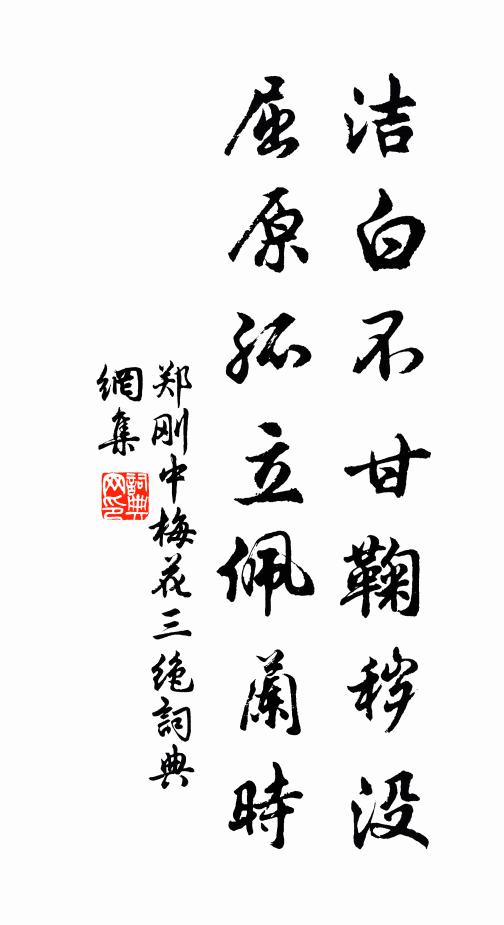 洁白不甘鞠秽没
屈原孤立佩蘭時
郑刚中梅花三绝詞典
網集
詞典
网印